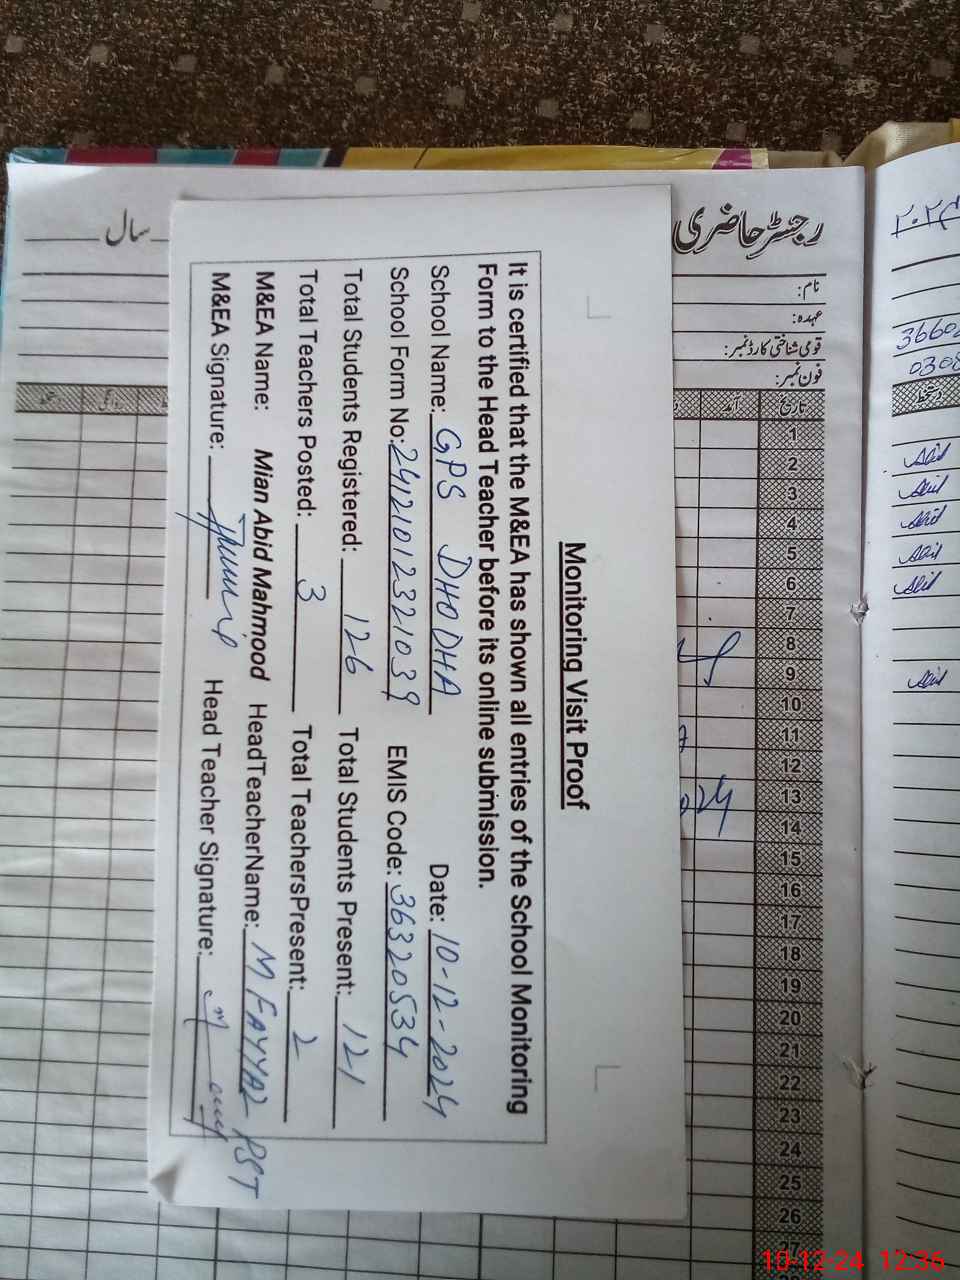 Monitoring Visit Proof
It is certified that the M&EA has shown all entries of the School Monitoring
Form to the Head Teacher before its online submission.
School Name: GPS DHODHA Date: 10-12-2024
School Form No: 24121012321039 EMIS Code: 36320534
Total Students Registered: 126 Total Students Present: 121
Total Teachers Posted: 3 Total TeachersPresent: 2
M&EA Name: Mian Abid Mahmood HeadTeacherName: M FAYYAZ PST
M&EA Signature: Head Teacher Signature:
رجسٹر حاضری
سال
نام:
عہدہ:
قومی شناختی کارڈ نمبر:
فون نمبر:
تاریخ آمد
1
2
3
4
5
6
7
8
9
10
11
12
13
14
15
16
17
18
19
20
21
22
23
24
25
26
27
۲۰۲۴
3660
0308
دستخط
10-12-24 12:36